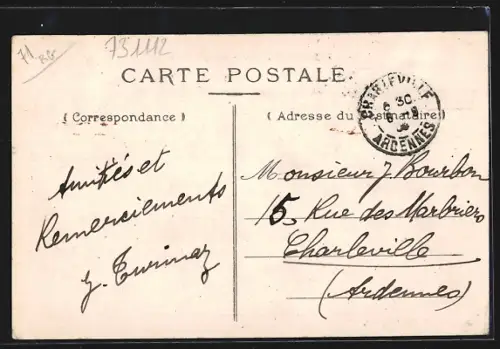 71
731112
CARTE POSTALE.
( Correspondance )
( Adresse du Destinataire )
CHARLEVILLE
6 30
ARDENNES
Amitiés et
Remerciements
Monsieur J. Bourbon
15, Rue des Marbriers
Charleville
(Ardennes)